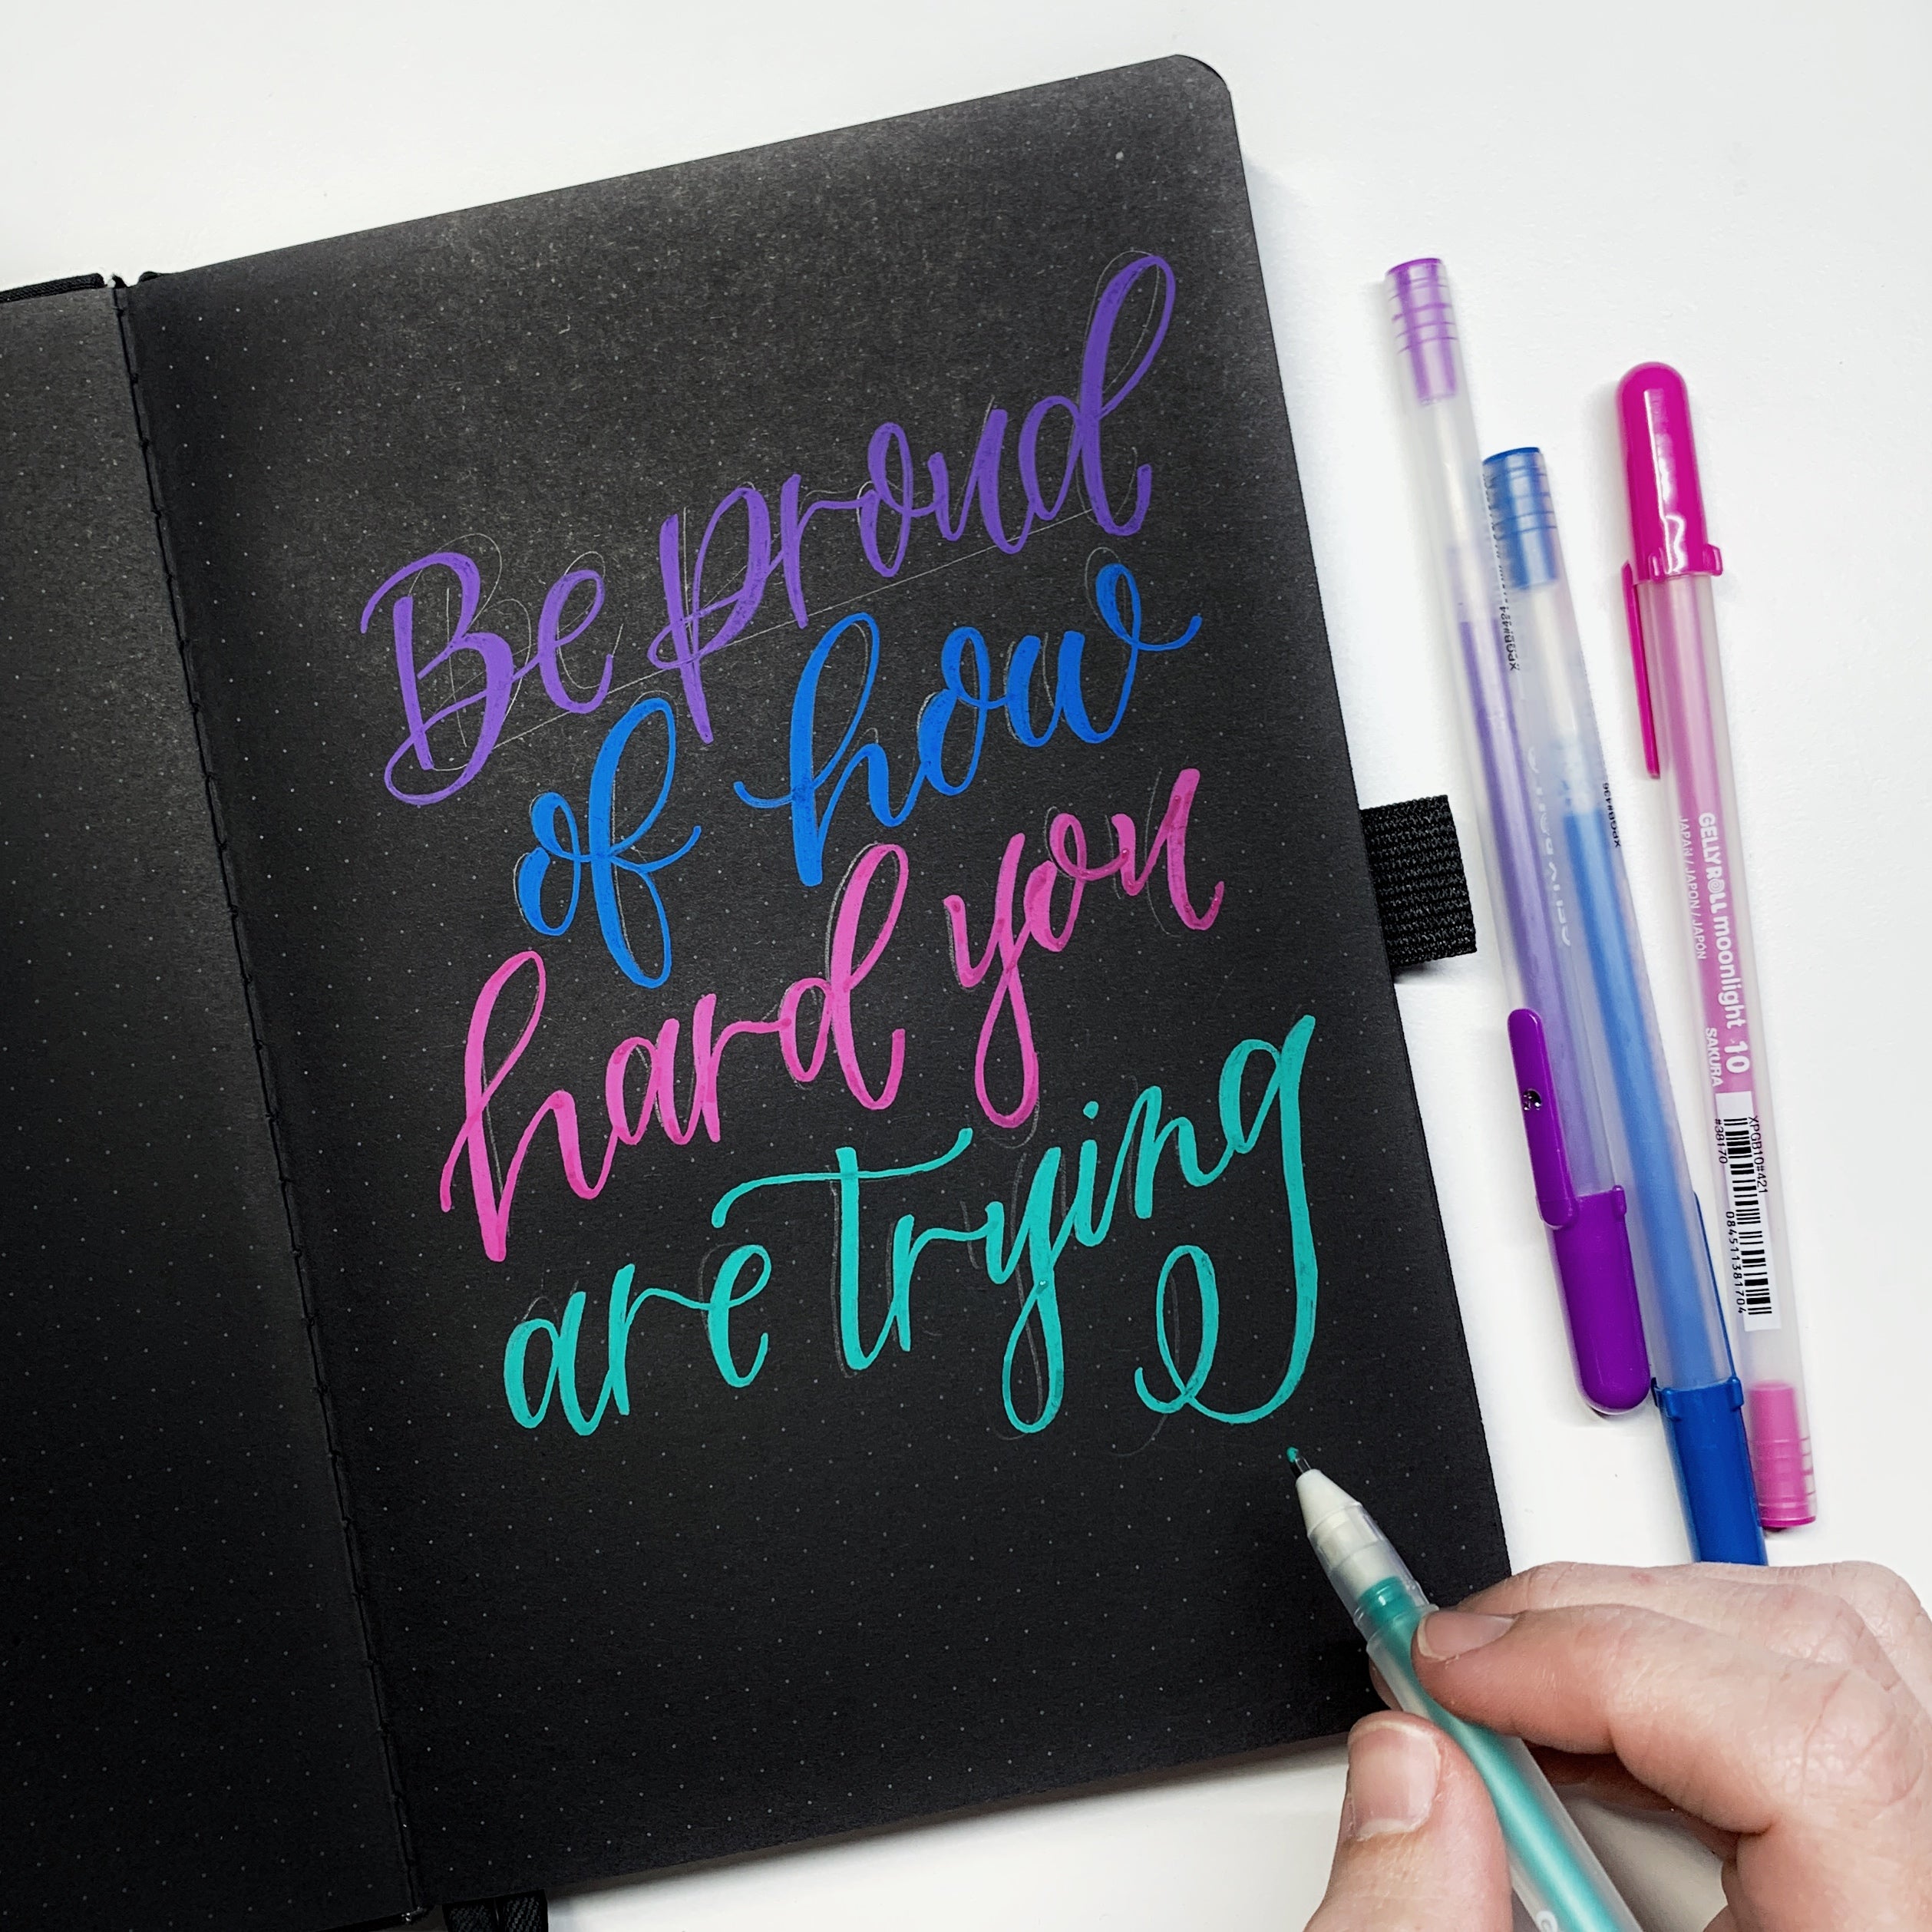 Be proud
of how
hard you
are trying
GELLY ROLL moonlight 10
JAPAN / JAPON / JAPÓN
SAKURA
XPGB10#421
#38170
084511381704